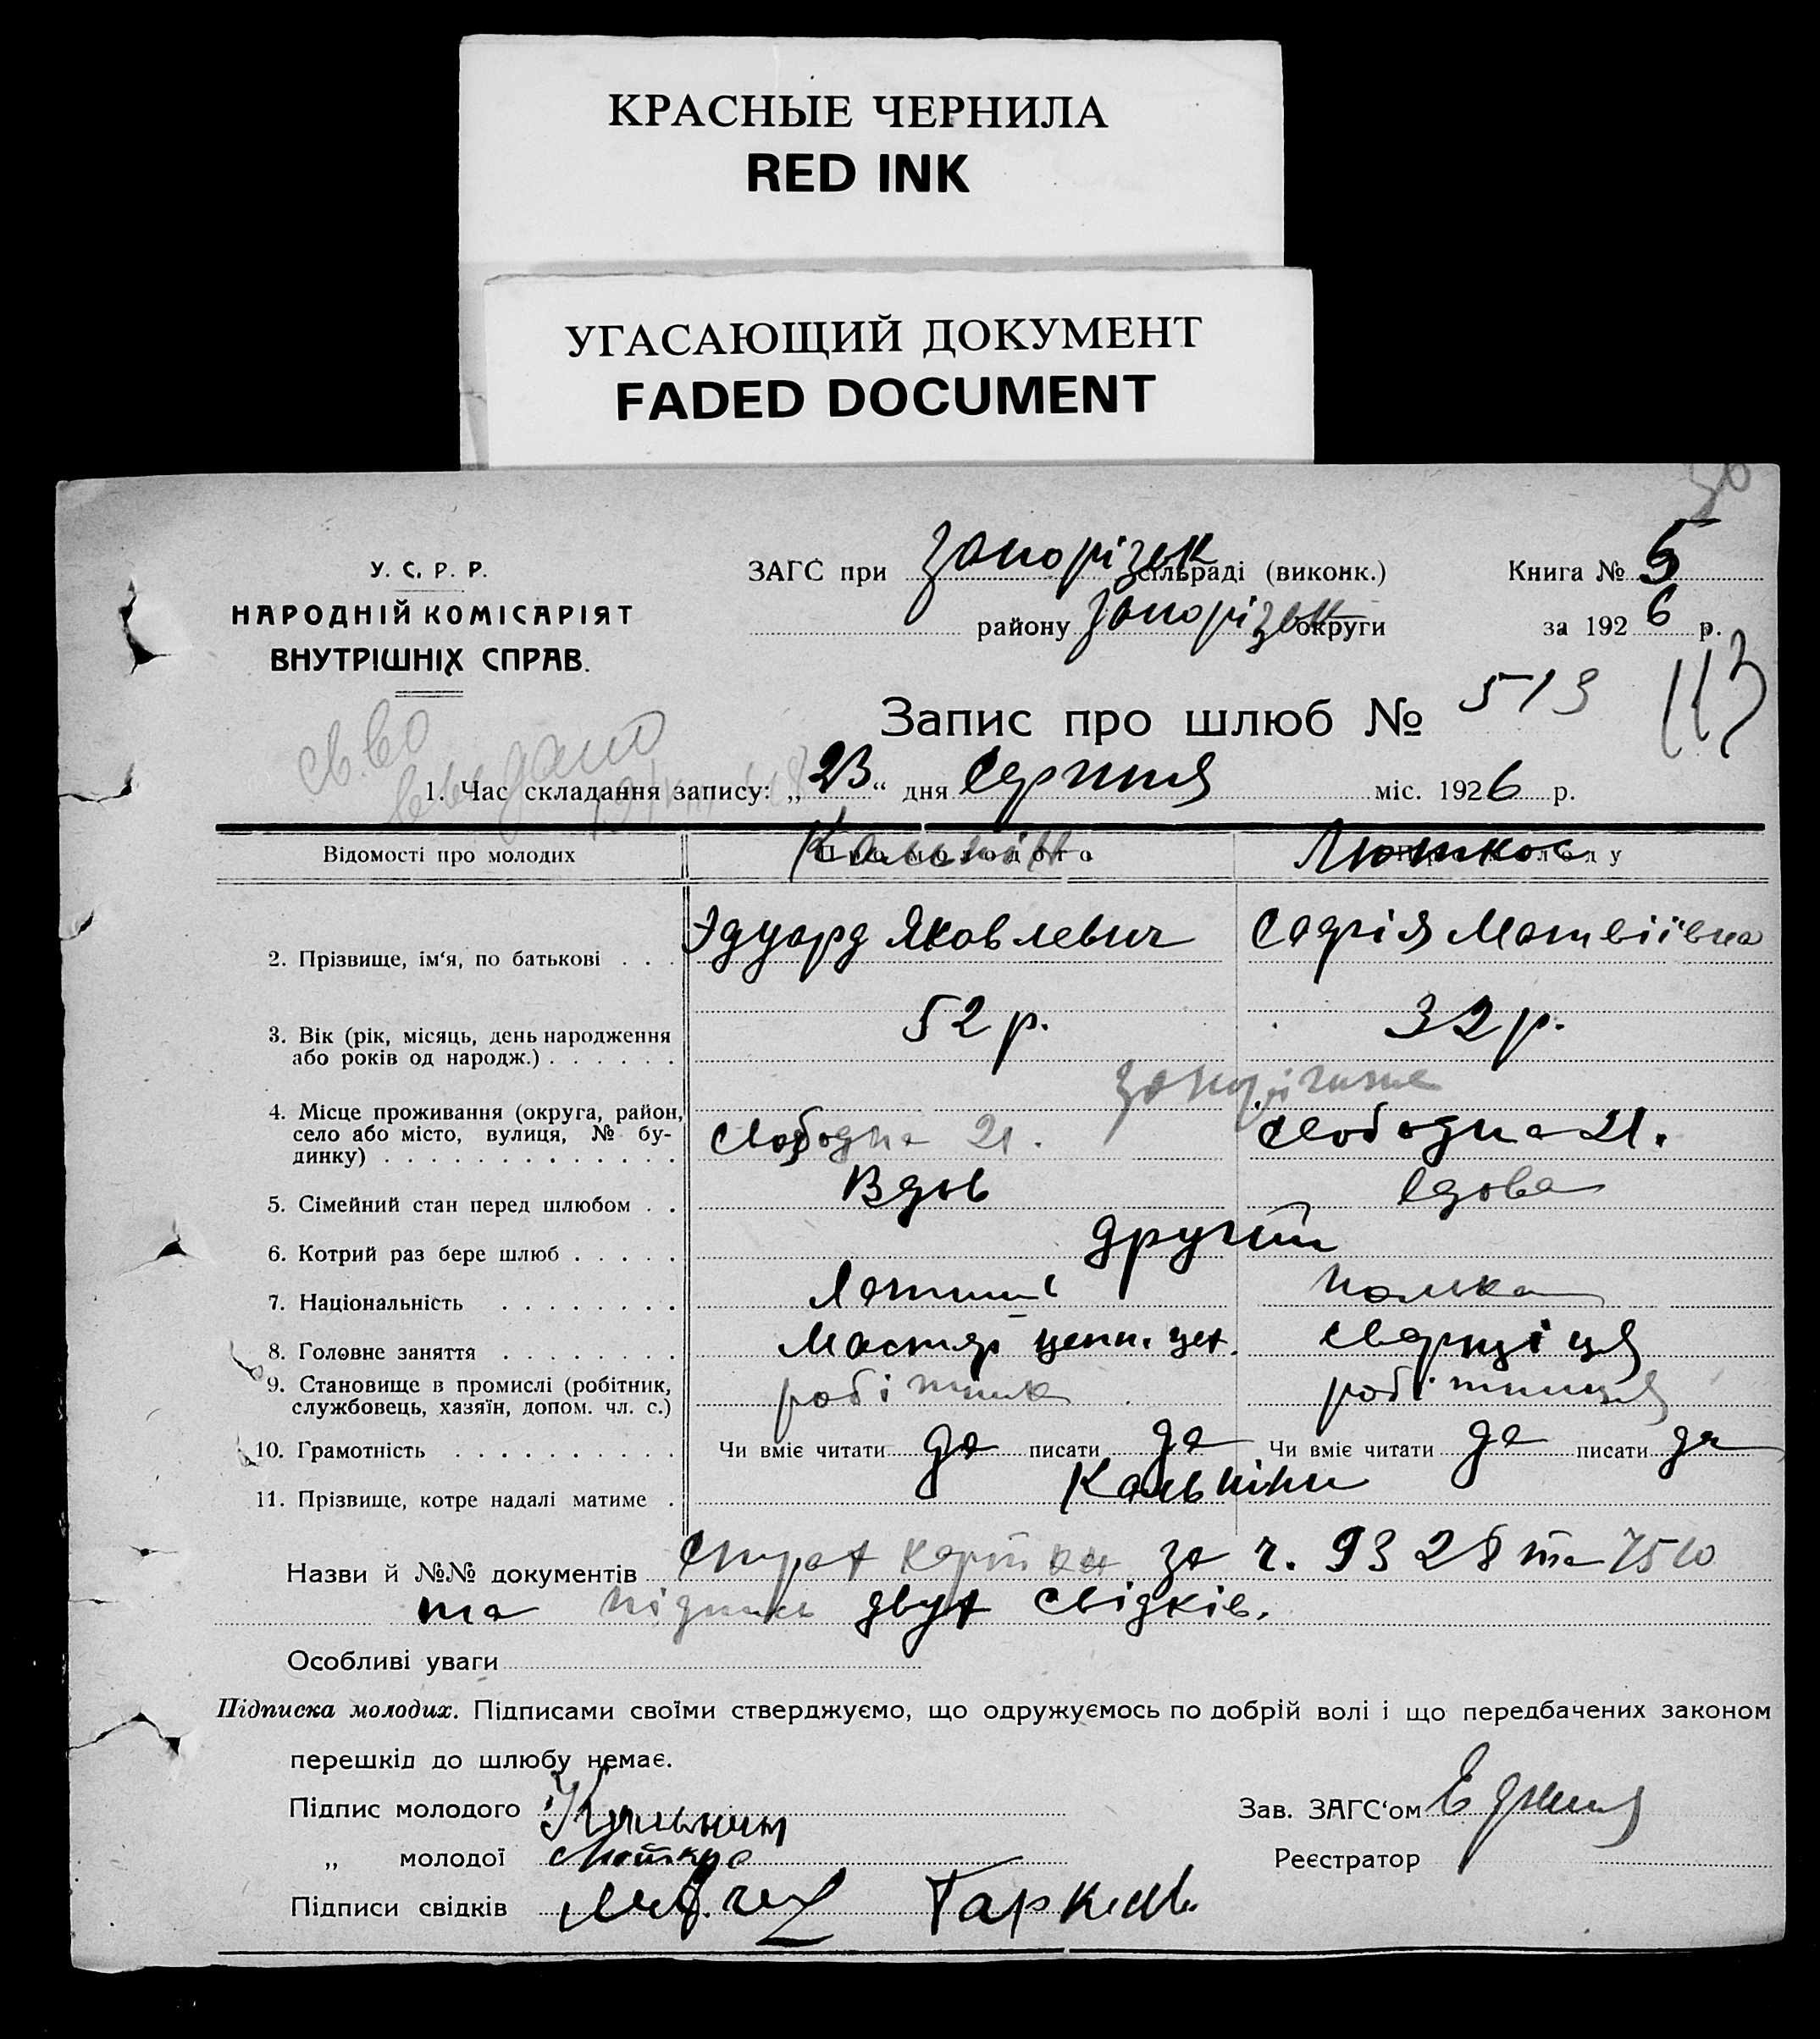 КРАСНЫЕ ЧЕРНИЛА
RED INK
УГАСАЮЩИЙ ДОКУМЕНТ
FADED DOCUMENT
У. С. Р. Р.
НАРОДНІЙ КОМІСАРІЯТ
ВНУТРІШНІХ СПРАВ.
ЗАГС при Запорізьк сільраді (виконк.)
району Запорізьк округи
Книга № 5
за 1926 р.
Запис про шлюб № 513
113
св.во
видано
1. Час складання запису: „23“ дня Серпня міс. 1926 р.
Відомості про молодих
Про молодого
Кальнін
Про молоду
2. Прізвище, ім'я, по батькові . . . Эдуард Яковлевич Софія Матвіївна
3. Вік (рік, місяць, день народження
або років од народж.) . . . . . . 52 р. 32 р.
Запоріжже
4. Місце проживання (округа, район,
село або місто, вулиця, № бу-
динку) . . . . . . . . . . . . . Слободна 21. Слободна 21.
5. Сімейний стан перед шлюбом . . Вдов вдова
6. Котрий раз бере шлюб . . . . . другий
7. Національність . . . . . . . . Латиш полька
8. Головне заняття . . . . . . . . Мастер
9. Становище в промислі (робітник,
службовець, хазяїн, допом. чл. с.) робітник робітниця
10. Грамотність . . . . . . . . . . Чи вміє читати да писати да Чи вміє читати да писати да
11. Прізвище, котре надалі матиме . Кальніни
Назви й №№ документів карток за ч. 9328 та 7510
та підпись двух свідків.
Особливі уваги
Підписка молодих. Підписами своїми стверджуємо, що одружуємось по добрій волі і що передбачених законом
перешкід до шлюбу немає.
Підпис молодого Кальнин
„ молодої
Підписи свідків
Зав. ЗАГС'ом
Реєстратор